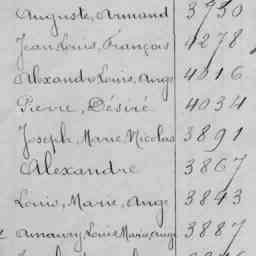 Auguste, Armand 3930
Jean Louis, François 4278
Alexandre Louis, Ange 4016
Pierre, Désiré 4034
Joseph, Marie Nicolas 3891
Alexandre 3867
Louis, Marie, Ange 3843
Amaury, Louis Marie, Ange 3887